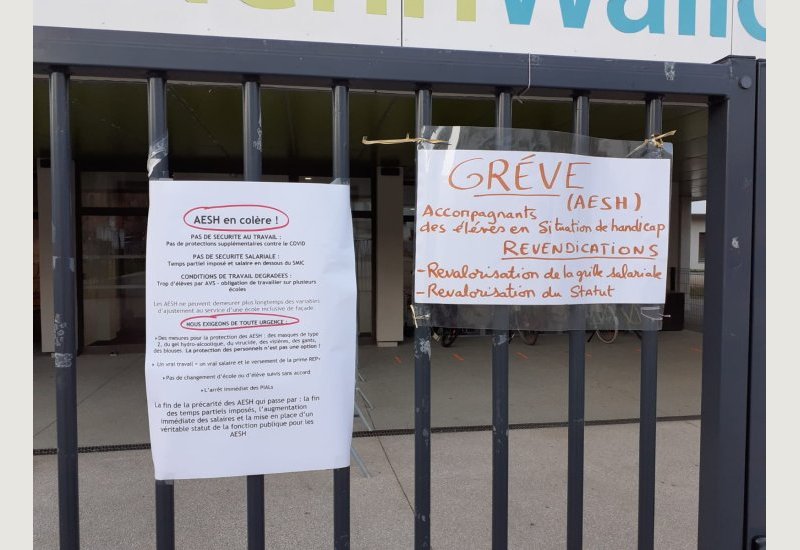 Wallo
AESH en colère !
PAS DE SECURITE AU TRAVAIL :
Pas de protections supplémentaires contre le COVID
PAS DE SECURITE SALARIALE :
Temps partiel imposé et salaire en dessous du SMIC
CONDITIONS DE TRAVAIL DEGRADEES :
Trop d'élèves par AVS - obligation de travailler sur plusieurs
écoles
Les AESH ne peuvent demeurer plus longtemps des variables
d'ajustement au service d'une école inclusive de façade.
NOUS EXIGEONS DE TOUTE URGENCE :
Des mesures pour la protection des AESH : des masques de type
2, du gel hydro-alcoolique, du virucide, des visières, des gants,
des blouses. La protection des personnels n'est pas une option !
Un vrai travail = un vrai salaire et le versement de la prime REP+
Pas de changement d'école ou d'élève suivis sans accord
L'arrêt immédiat des PIALs
La fin de la précarité des AESH qui passe par : la fin
des temps partiels imposés, l'augmentation
immédiate des salaires et la mise en place d'un
véritable statut de la fonction publique pour les
AESH
GRÉVE
(AESH)
Accompagnants
des élèves en Situation de handicap
REVENDICATIONS
- Revalorisation de la grille salariale
- Revalorisation du Statut